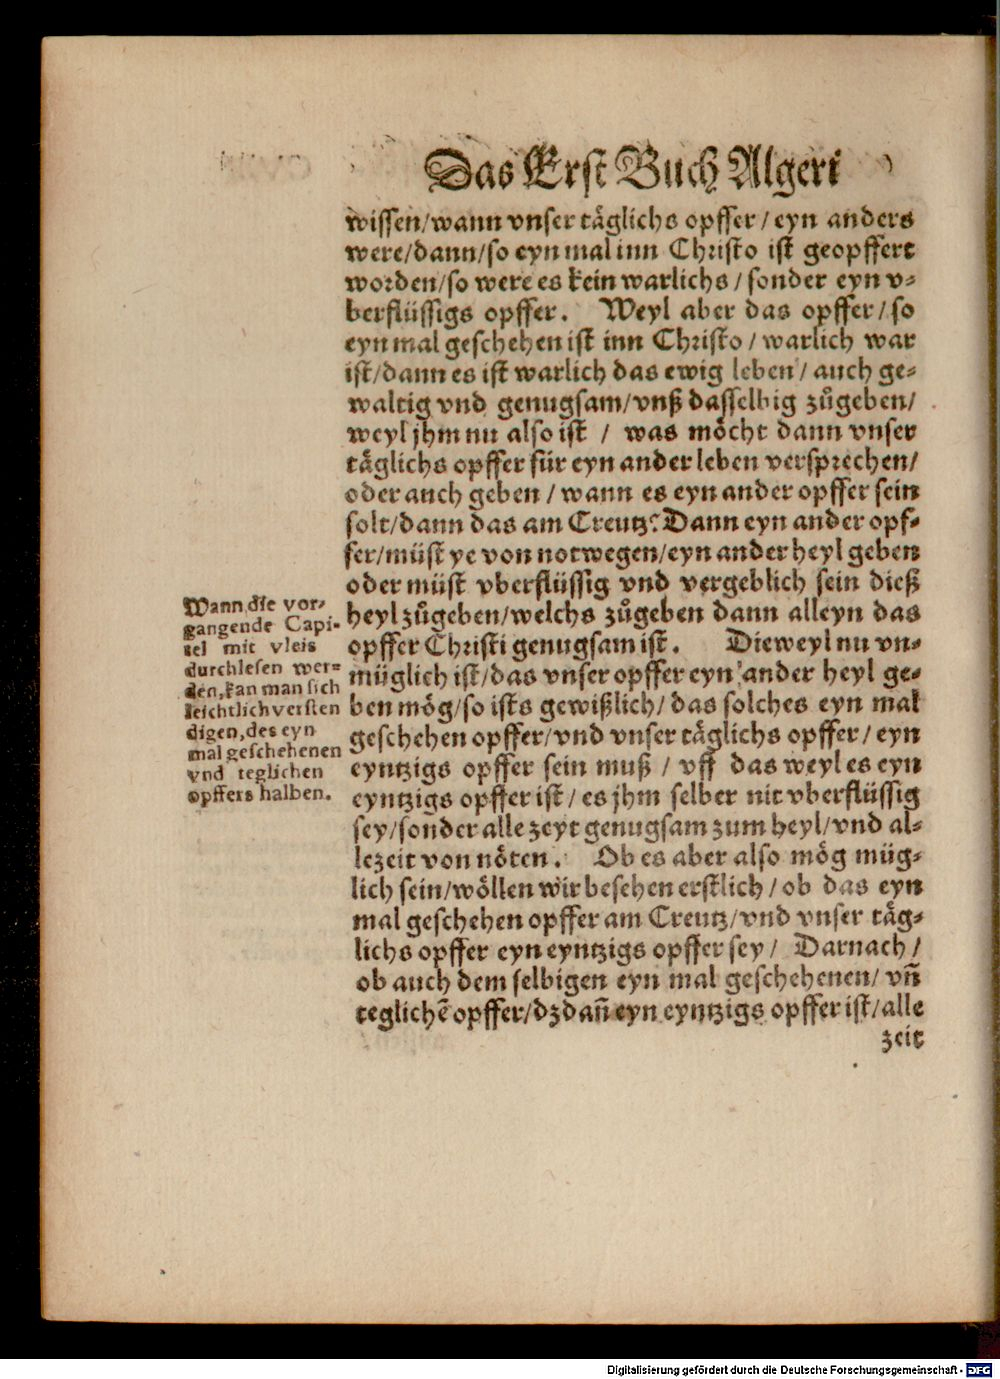 Das Erst Buch Algeri
wissen/wann vnser täglichs opffer/eyn anders
were/dann/so eyn mal inn Christo ist geopffert
worden/so were es kein warlichs/sonder eyn v⸗
berflüssigs opffer. Weyl aber das opffer/so
eyn mal geschehen ist inn Christo/warlich war
ist/dann es ist warlich das ewig leben/auch ge⸗
waltig vnd genugsam/vnß dasselbig zůgeben/
weyl jhm nu also ist / was möcht dann vnser
täglichs opffer für eyn ander leben versprechen/
oder auch geben/wann es eyn ander opffer sein
solt/dann das am Creutz? Dann eyn ander opf⸗
fer/müst ye von notwegen/eyn ander heyl geben
oder müst vberflüssig vnd vergeblich sein dieß
heyl zůgeben/welchs zůgeben dann alleyn das
opffer Christi genugsam ist. Dieweyl nu vn⸗
müglich ist/das vnser opffer eyn ander heyl ge⸗
ben mög/so ists gewißlich/das solches eyn mal
geschehen opffer/vnd vnser täglichs opffer/eyn
eyntzigs opffer sein muß / vff das weyl es eyn
eyntzigs opffer ist/es jhm selber nit vberflüssig
sey/sonder alle zeyt genugsam zum heyl/vnd al⸗
lezeit von nöten. Ob es aber also mög müg⸗
lich sein/wöllen wir besehen erstlich/ob das eyn
mal geschehen opffer am Creutz/vnd vnser täg⸗
lichs opffer eyn eyntzigs opffer sey/ Darnach/
ob auch dem selbigen eyn mal geschehenen/vñ
teglichē opffer/dz dañ eyn eyntzigs opffer ist/alle
zeit
Wann die vor⸗
gangende Capi⸗
tel mit vleis
durchlesen wer⸗
den, kan man sich
leichtlich versten
digen, des eyn
mal geschehenen
vnd teglichen
opffers halben.
Digitalisierung gefördert durch die Deutsche Forschungsgemeinschaft - DFG